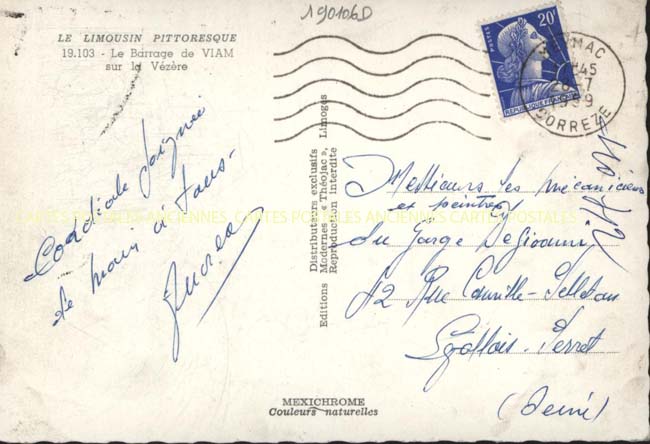 190106D
LE LIMOUSIN PITTORESQUE
19.103 - Le Barrage de VIAM
sur la Vézère
20F
POSTES
REPUBLIQUE FRANÇAISE
1959
CORREZE
Cordiale Poignée
de main à Tous-
Editions Modernes « Théojac », Limoges
Distributeurs exclusifs
Reproduction Interdite
Messieurs les mécaniciens
et peintres
du garage
12 Rue Camille Pelletan
Levallois-Perret
(Seine)
CARTES POSTALES ANCIENNES CARTES POSTALES ANCIENNES CARTES POSTALES
MEXICHROME
Couleurs naturelles